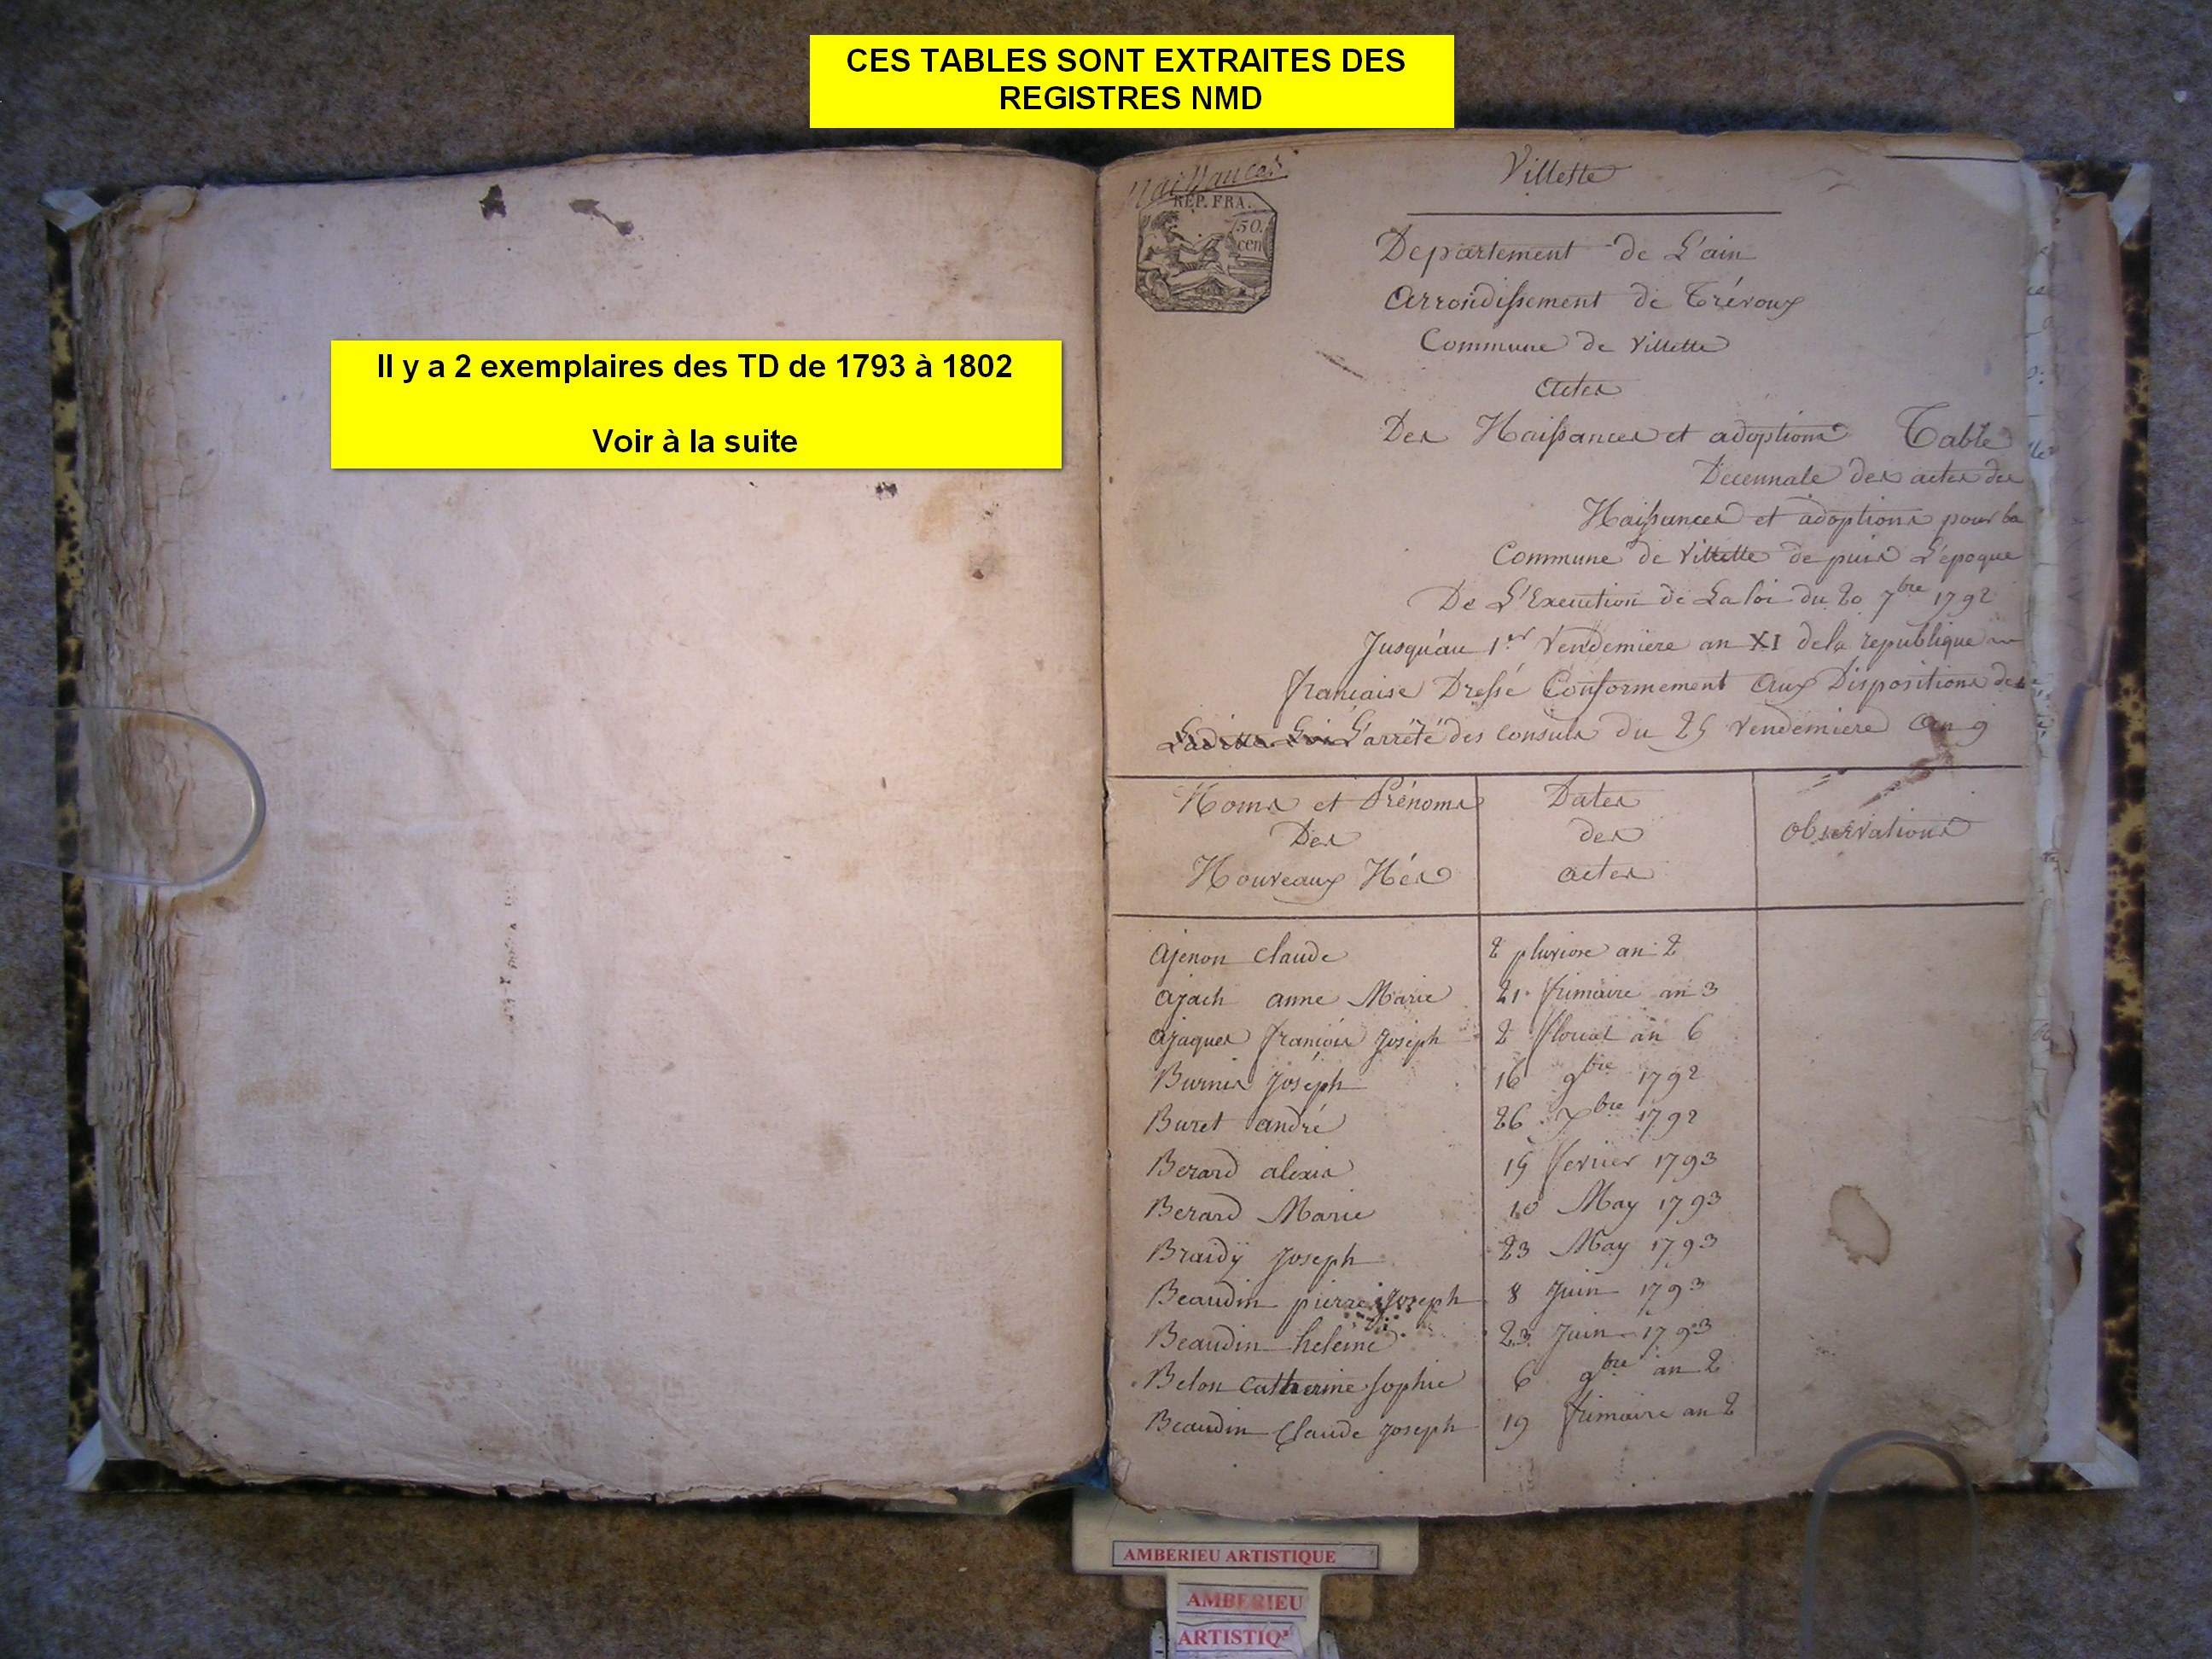 CES TABLES SONT EXTRAITES DES
REGISTRES NMD
Il y a 2 exemplaires des TD de 1793 à 1802
Voir à la suite
Naissances
REP. FRA.
50.
cen
Villette
Departement de L'ain
Arrondissement de Trévoux
Commune de Villette
Actes
Des Naissances et adoptions Table
Decennale des actes des
Naissances et adoptions pour la
Commune de Villette de puis L'epoque
De L'Execution de La loi du 20 7bre 1792
Jusqu'au 1er Vendemiere an XI de la republique
française Dressé Conformement Aux Dispositions de
L'arrêté des consuls du 25 Vendemiere An 9
Noms et Prénoms
Des
Nouveaux Nés
Dates
des
actes
observations
Ajenon Claude 2 pluviose an 2
Ajach anne Marie 21 frimaire an 3
Ajaques françois Joseph 2 floreal an 6
Burnis Joseph 16 9bre 1792
Buret andré 26 7bre 1792
Berard alexis 15 fevrier 1793
Berard Marie 10 May 1793
Braidÿ Joseph 23 May 1793
Beaudin pierre Joseph 8 Juin 1793
Beaudin heleine 23 Juin 1793
Belon Catherine Sophie 6 9bre an 2
Beaudin Claude Joseph 19 frimaire an 2
AMBERIEU ARTISTIQUE
AMBERIEU
ARTISTIQ